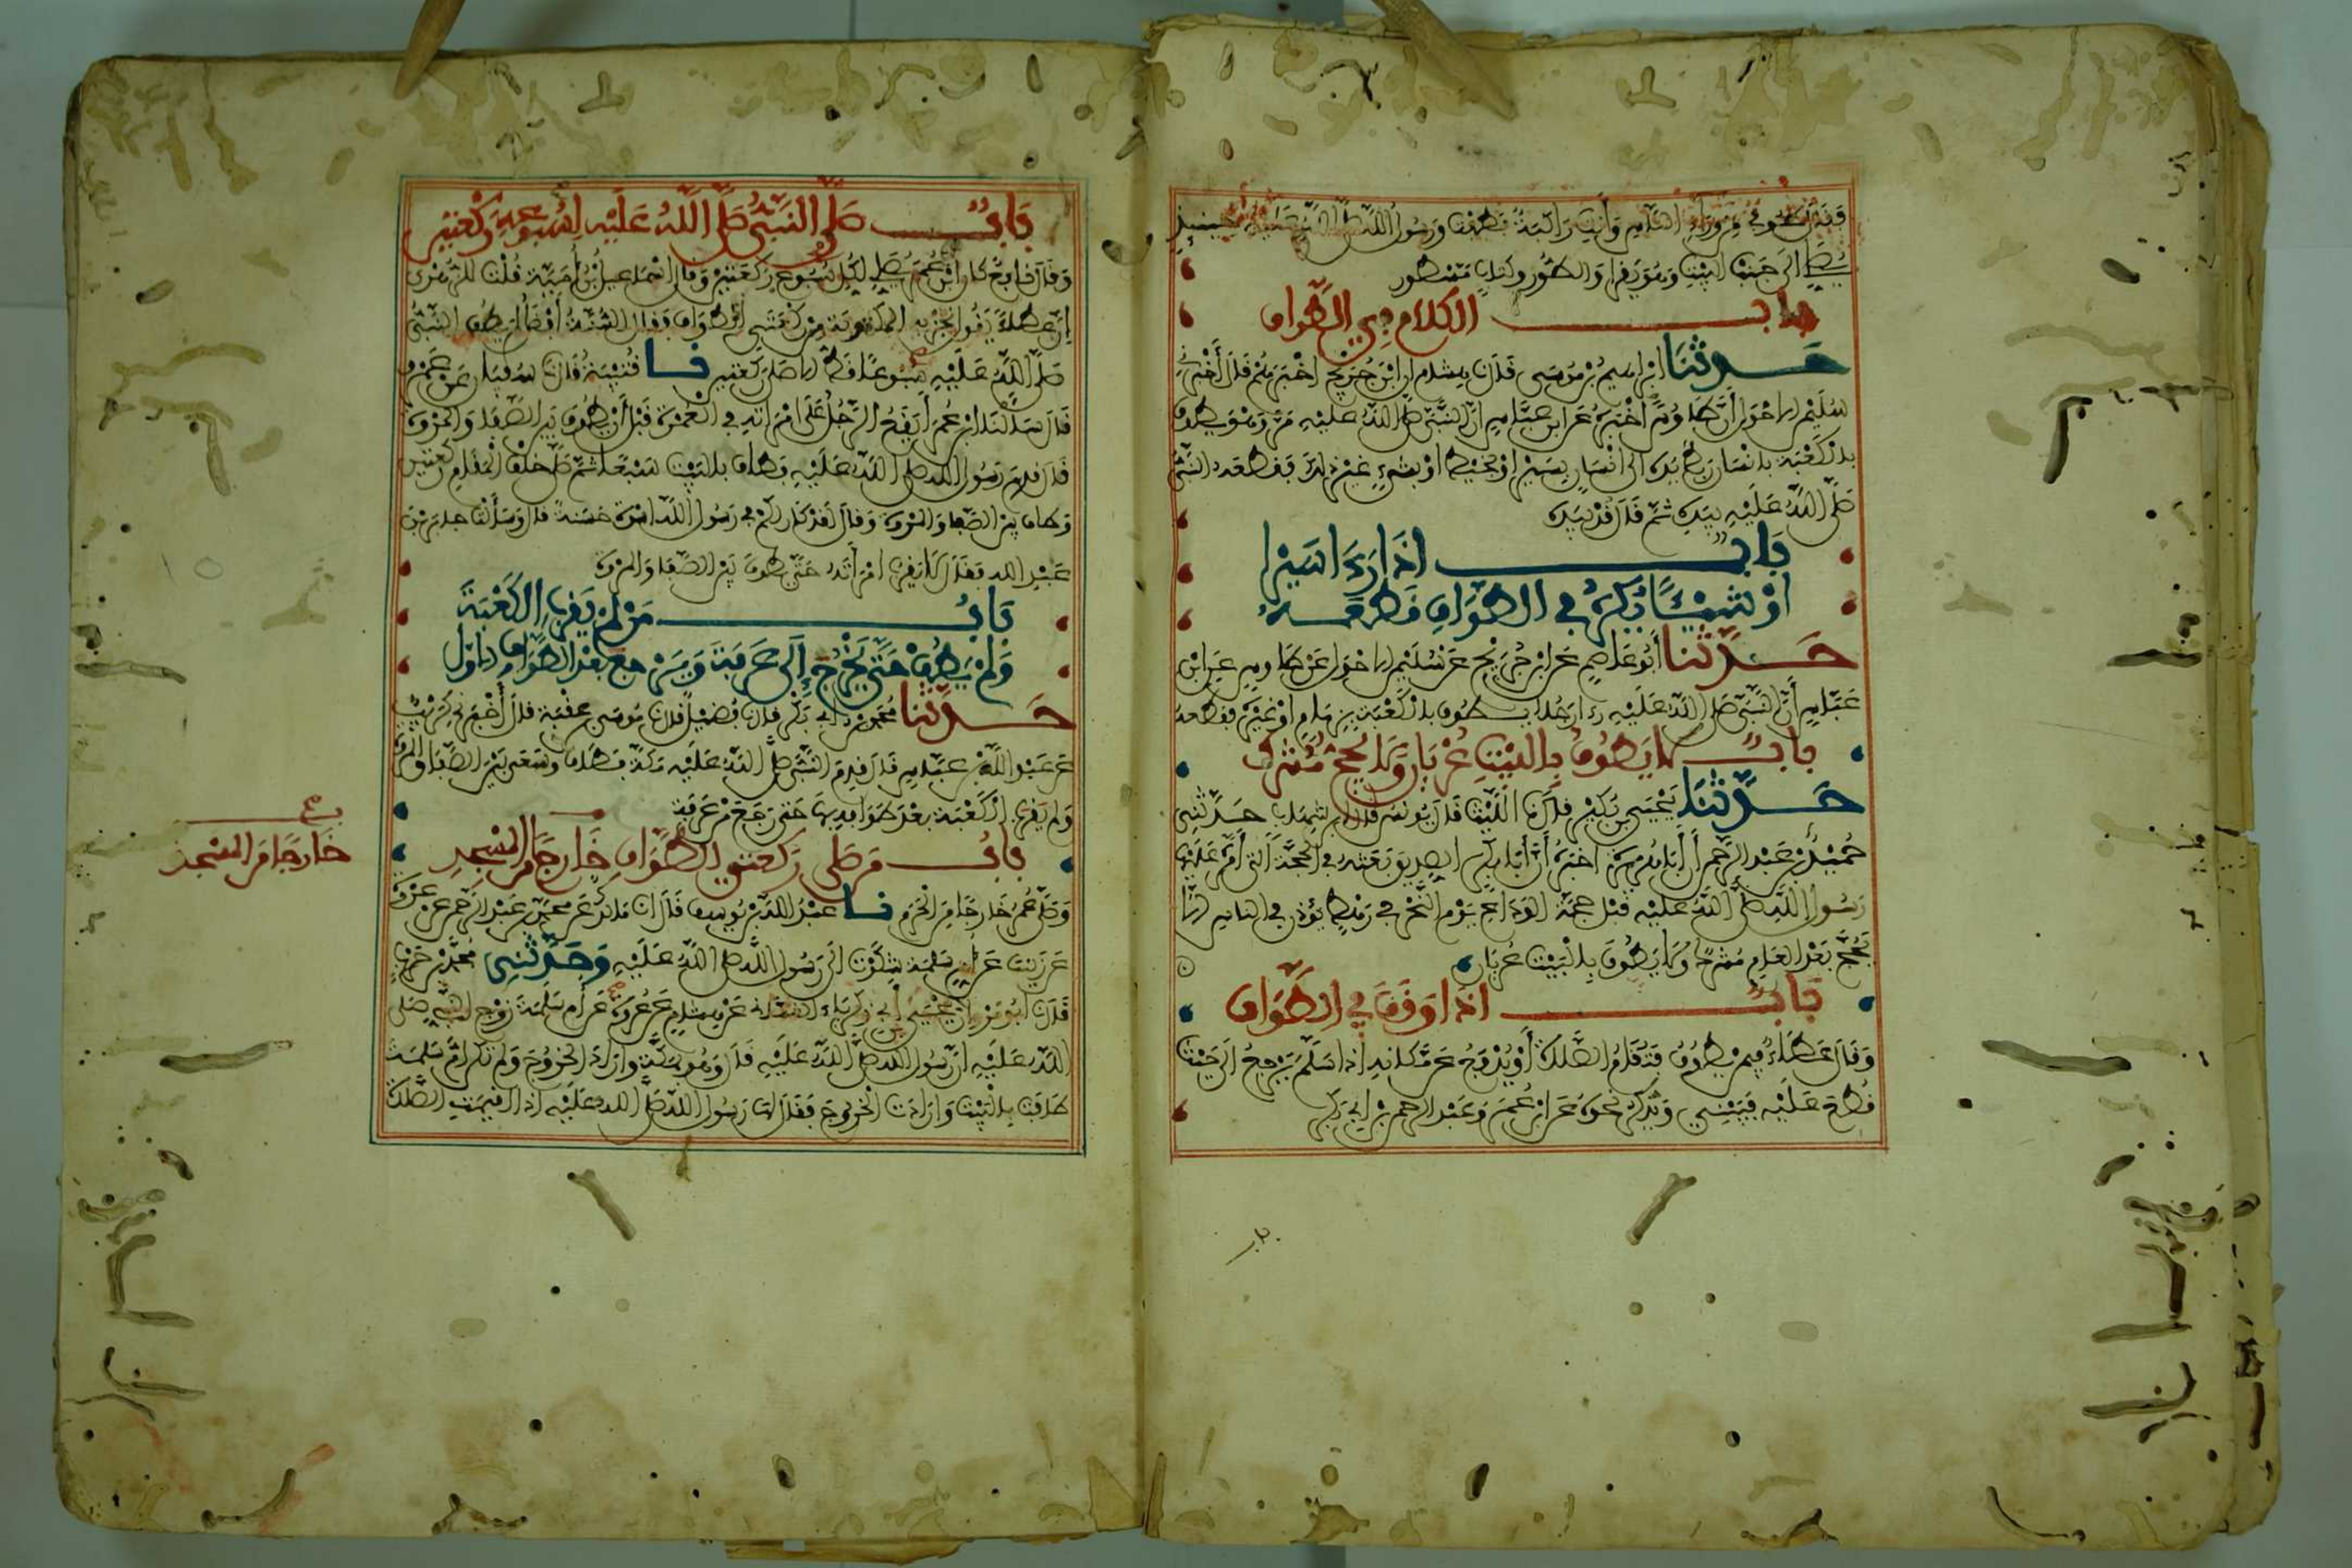 فقال طوفي من وراء الناس وأنت راكبة فطفت ورسول الله صلى الله عليه حينئذ
يصلي الى جنب البيت وهو يقرأ والطور وكتاب مسطور
باب الكلام في الطواف
حدثنا ابراهيم بن موسى قال نا هشام ان ابن جريج اخبرهم قال أخبرني
سليمن الاحول أن طاوسا أخبره عن ابن عباس ان النبي صلى الله عليه مر وهو يطوف
بالكعبة بانسان ربط يده الى انسان بسير او بخيط او بشيء غير ذلك فقطعه النبي
صلى الله عليه بيده ثم قال قد بيده
باب اذا رءا سيرا
او شيئا يكره في الطواف قطعه
حدثنا أبو عاصم عن ابن جريج عن سليمن الاحول عن طاوس عن ابن
عباس أن النبي صلى الله عليه رءا رجلا يطوف بالكعبة بزمام او غيره فقطعه
باب لا يطوف بالبيت عريان ولا يحج مشرك
حدثنا يحيى بن بكير قال نا الليث قال يونس قال ابن شهاب حدثني
حميد بن عبد الرحمن أن أبا هريرة اخبره أن أبا بكر الصديق بعثه في الحجة التي أمره عليها
رسول الله صلى الله عليه قبل حجة الوداع يوم النحر في رهط يؤذن في الناس الا
يحج بعد العام مشرك ولا يطوف بالبيت عريان
باب اذا وقف في الطواف
وقال عطاء فيمن يطوف فتقام الصلاة أو يدفع عن مكانه اذا سلم يرجع الى حيث
قطع عليه فيبني ويذكر نحوه عن ابن عمر وعبد الرحمن بن ابي بكر
باب صلى النبي صلى الله عليه لسبوعه ركعتين
وقال نافع كان ابن عمر يصلي لكل سبوع ركعتين وقال اسماعيل بن أمية قلت للزهري
إن عطاء يقول تجزيه المكتوبة من ركعتي الطواف فقال السنة أفضل لم يطف النبي
صلى الله عليه سبوعا قط الا صلى ركعتين نا قتيبة قال نا سفيان عن عمرو
قال سألنا ابن عمر أيقع الرجل على امرأته في العمرة قبل أن يطوف بين الصفا والمروة
قال قدم رسول الله صلى الله عليه وطاف بالبيت سبعا ثم صلى خلف المقام ركعتين
وطاف بين الصفا والمروة وقال لقد كان لكم في رسول الله اسوة حسنة قال وسألت جابر بن
عبد الله فقال لا يقرب امرأته حتى يطوف بين الصفا والمروة
باب من لم يقرب الكعبة
ولم يطف حتى يخرج إلى عرفة ويرجع بعد الطواف الاول
حدثنا محمد بن أبي بكر قال نا فضيل قال نا موسى بن عقبة قال أخبرني كريب
عن عبد الله بن عباس قال قدم النبي صلى الله عليه مكة فطاف وسعى بين الصفا والمروة
ولم يقرب الكعبة بعد طوافه بها حتى رجع من عرفة
باب من صلى ركعتي الطواف خارجا من المسجد
وصلى عمر خارجا من الحرم نا عبد الله بن يوسف قال انا مالك عن محمد بن عبد الرحمن عن عروة
عن زينب عن ام سلمة شكوت الى رسول الله صلى الله عليه وحدثني محمد بن حرب
قال نا ابو مروان يحيى بن أبي زكرياء الغساني عن هشام عن عروة عن أم سلمة زوج النبي صلى
الله عليه ان رسول الله صلى الله عليه قال وهو بمكة واراد الخروج ولم تكن ام سلمة
طافت بالبيت وارادت الخروج فقال لها رسول الله صلى الله عليه اذا اقيمت الصلاة
خارجا من المسجد